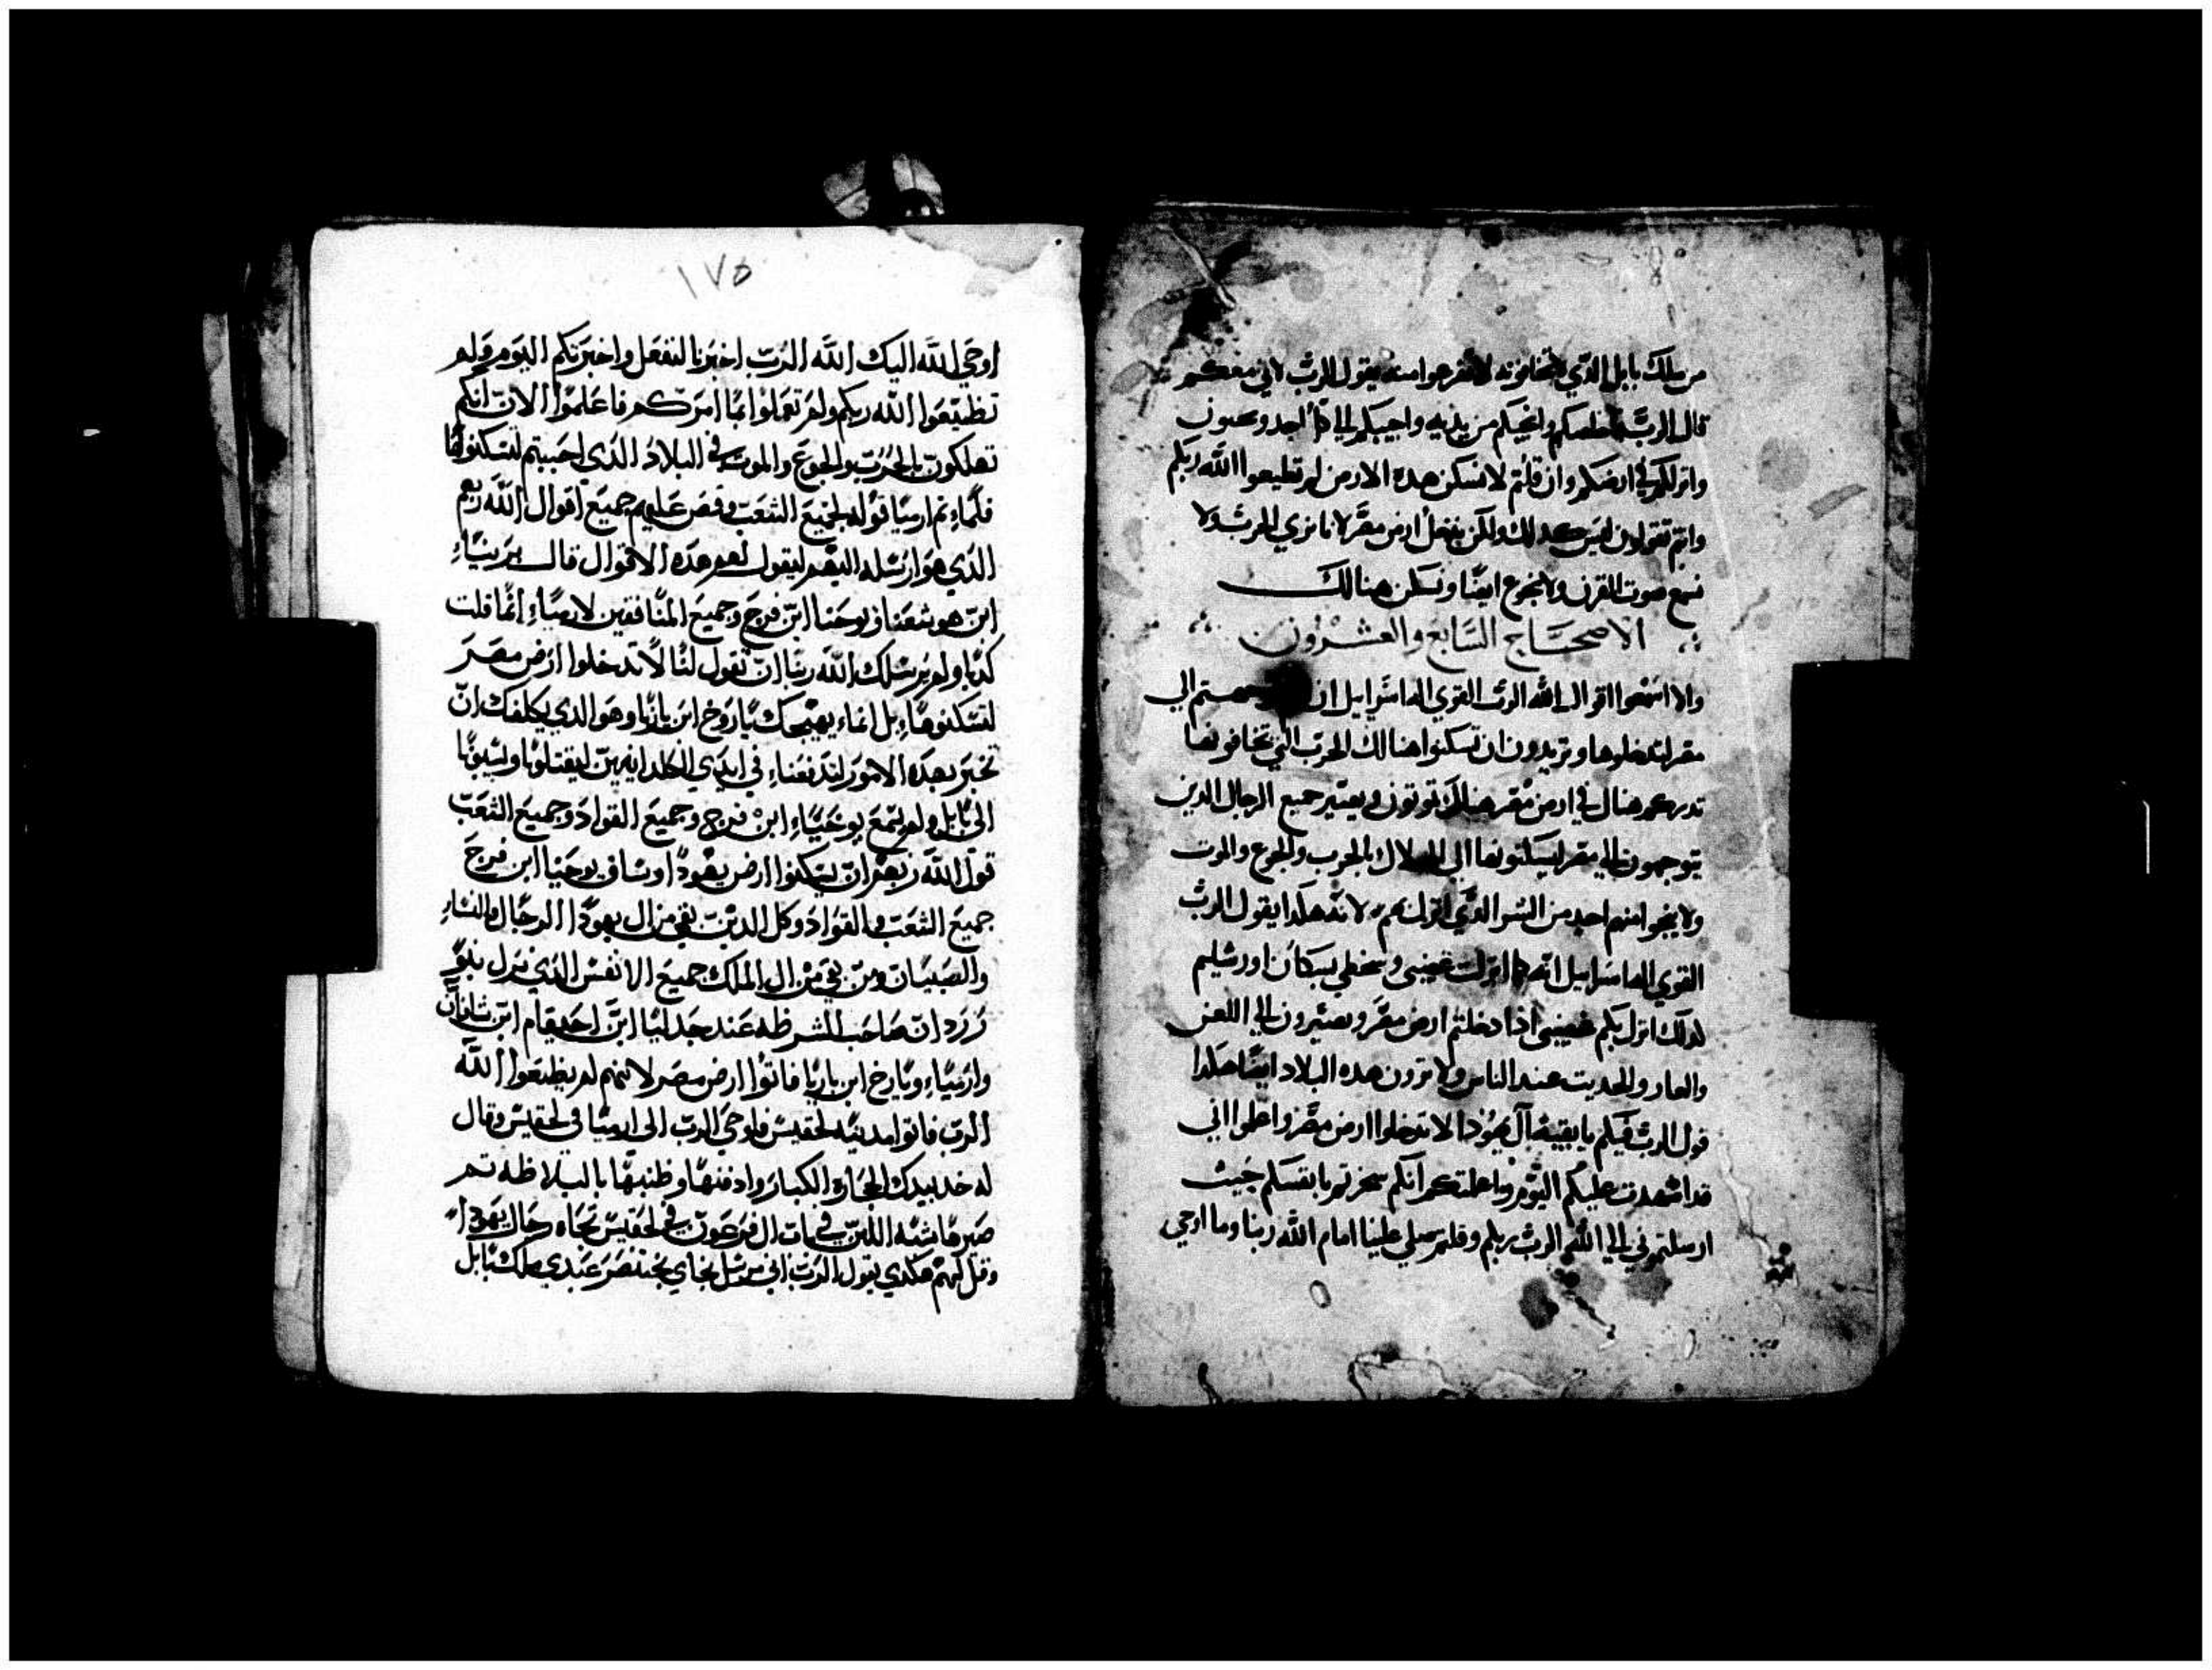 من ملك بابل الذي تخافونه لا تفزعوا منه يقول الرب لاني معكم
قال الرب لخلصكم وانجيكم من يديه واجيبكم الي
وانزلكم في ارضكم وان قلتم لا نسكن هده الارض لم تطيعوا الله ربكم
وانتم تقولون ليس كدلك ولكن ندخل ارض مصر لانا نري الحرب ولا
نسمع صوت القرن ولا نجوع ايضا ونسكن هنالك
الاصحاح السابع والعشرون
والا اسمعوا اقوال الله الرب القوي اله اسرايل ان الي
مصر لتدخلوها وتريدون ان تسكنوا هنالك الحرب التي تخافونها
تدرككم هنال في ارض مصر هنالك توتون ويصير جميع الرجال الدين
يتوجهون الي مصر ليسكنونها الي الهلاك بالحرب والجوع والموت
ولا ينجوا منهم احد من الشر الدي انزل بهم لانه هكدا يقول الرب
القوي اله اسراييل انه كما انزلت غضبي وسخطي بسكان اورشليم
لدلك انزل بكم غضبي ادا دخلتم ارض مصر وتصيرون الي اللعن
والعار والحديت عند الناس ولا ترون هده البلاد ايضا هكدا
قول الرب فيكم يا بقية ال يهودا لا تدخلوا ارض مصر واعلموا اني
قد اشهدت عليكم اليوم واعلمتكم انكم مكرتم بانفسكم حيت
ارسلتموني الي الله الرب ربكم وقلتم صلي علينا امام الله ربنا وما اوحي
١٧٥
اوحي الله اليك الله الرب اخبرنا لنفعل واخبرتكم اليوم ولم
تطيعوا الله ربكم ولم تعملوا بما امركم فاعلموا الان انكم
تهلكون بالحرب والجوع والموت في البلاد الذي احببتم لتسكنوها
فلما اتم ارميا قوله لجميع الشعب وقص عليهم جميع اقوال الله ربهم
الذي هو ارسله اليهم ليقول لهم هده الاقوال قال
ابن هوشعنا ويوحنا ابن فرح وجميع المنافقين لارمياء انما قلت
كدبا ولم يرسلك الله ربنا ان تقول لنا لا تدخلوا ارض مصر
لتسكنوها بل انما يهيجك باروخ ابن ناريا وهو الدي يكلفك ان
تخبر بهده الامور لتدفعنا في ايدي الكلدانيين ليقتلونا ويسبونا
الى بابل ولم يسمع يوحنا ابن فرح وجميع القواد وجميع الشعب
قول الله ربهم ان يسكنوا ارض يهودا وساق يوحنا ابن فرح
جميع الشعب والقواد وكل الدين بقي من ال يهودا الرجال والنساء
والصبيان ومن بقي من ال الملك جميع الانفس الذي نزل
زردان صاحب الشرطه عند جدليا ابن احيقام ابن شافان
وارمياء وبارخ ابن ناريا فاتوا ارض مصر لانهم لم يطيعوا الله
الرب فاتوا مدينة لحفيس فاوحي الرب الى ارميا في لحفيس وقال
له خد بيدك الحجارة الكبار وادفنها وطنبها بالبلاطه تم
صيرها شبه اللبن في باب ال فرعون في لحفيس تجاه رجال يهودا
وقل لهم هكدي يقول الرب اني مرسل بختنصر عبدي ملك بابل